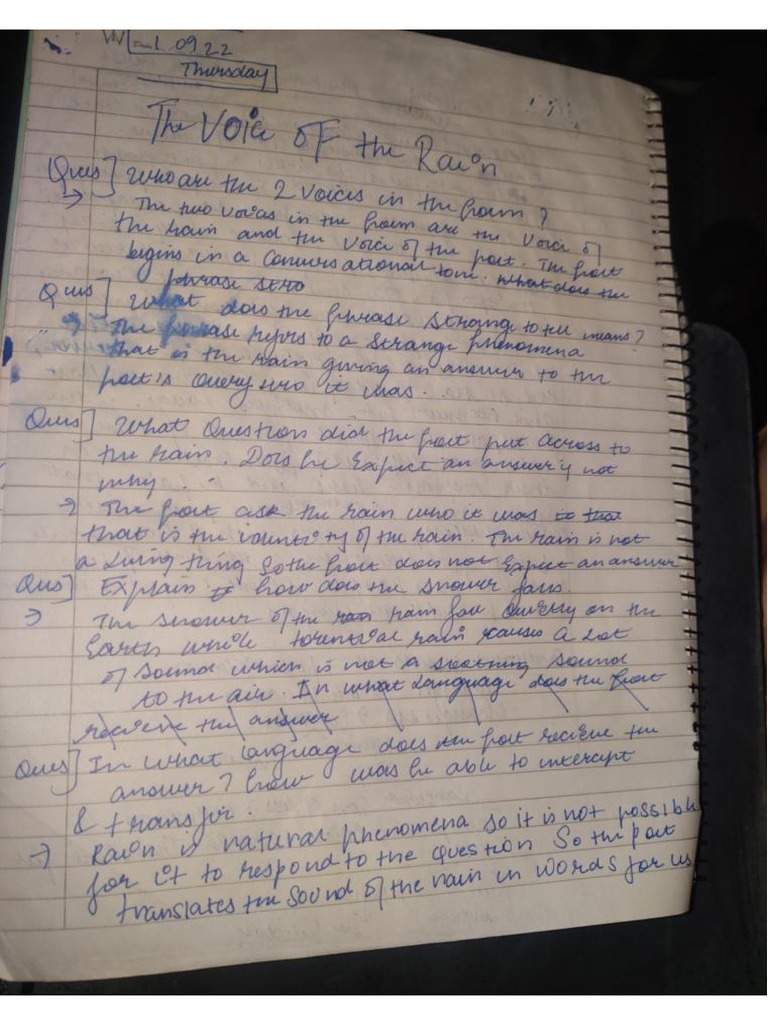 1.09.22
Thursday
The Voice of the Rain
Ques] Who are the 2 voices in the poem ?
→ The two voices in the poem are the voice of
the rain and the voice of the poet. The poet
begins in a conversational tone. What does the
phrase
Ques] What does the phrase strange to tell means?
→ The phrase refers to a strange phenomena
that is the rain giving an answer to the
poet's query who it was.
Ques] What Question did the poet put across to
the rain. Does he expect an answer if not
why.
→ The poet ask the rain who it was
that is the identity of the rain. The rain is not
a living thing so the poet does not expect an answer
Ques] Explain how does the shower falls.
→ The shower of the rain fall quietly on the
Earth while torential rain causes a lot
of sound which is not a soothing sound
to the air. In what language does the poet
recieve the answer
Ques] In what language does the poet recieve the
answer ? how was he able to intercept
& transfer.
→ Rain is natural phenomena so it is not possible
for it to respond to the question So the poet
translates the sound of the rain in words for us